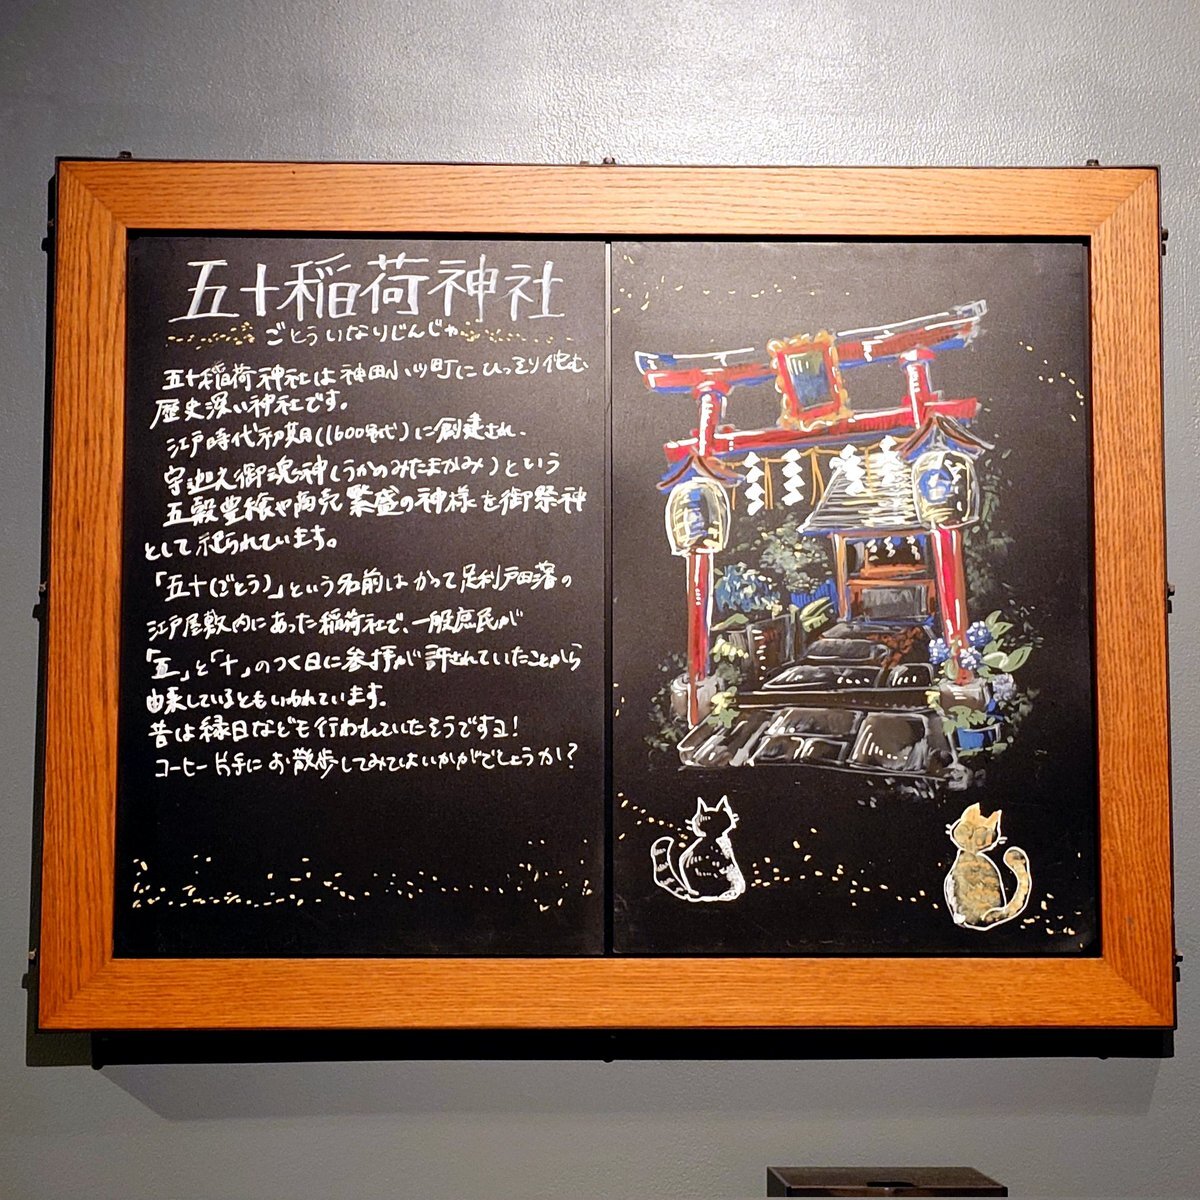 五十稲荷神社
ごとういなりじんじゃ
五十稲荷神社は神田小川町にひっそり佇む
歴史深い神社です。
江戸時代初期(1600年代)に創建され、
宇迦之御魂神(うかのみたまかみ)という
五穀豊穣や商売繁盛の神様を御祭神
として祀られています。
「五十(ごとう)」という名前はかつて足利戸田藩の
江戸屋敷内にあった稲荷社で、一般庶民が
「五」と「十」のつく日に参拝が許されていたことから
由来しているともいわれています。
昔は縁日なども行われていたそうですヨ!
コーヒー片手にお散歩してみてはいかがでしょうか?